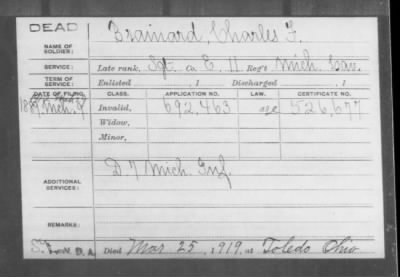 DEAD
NAME OF SOLDIER: Brainard, Charles F.
SERVICE: Late rank, Sgt. Co. E, 11 Reg't Mich. Cav.
TERM OF SERVICE: Enlisted , 1 Discharged , 1
DATE OF FILING. CLASS. APPLICATION NO. LAW. CERTIFICATE NO.
Mich. Invalid, 692,463 526,677
Widow,
Minor,
ADDITIONAL SERVICES: D. 7 Mich Inf.
REMARKS:
Died Mar 25, 1919, at Toledo Ohio